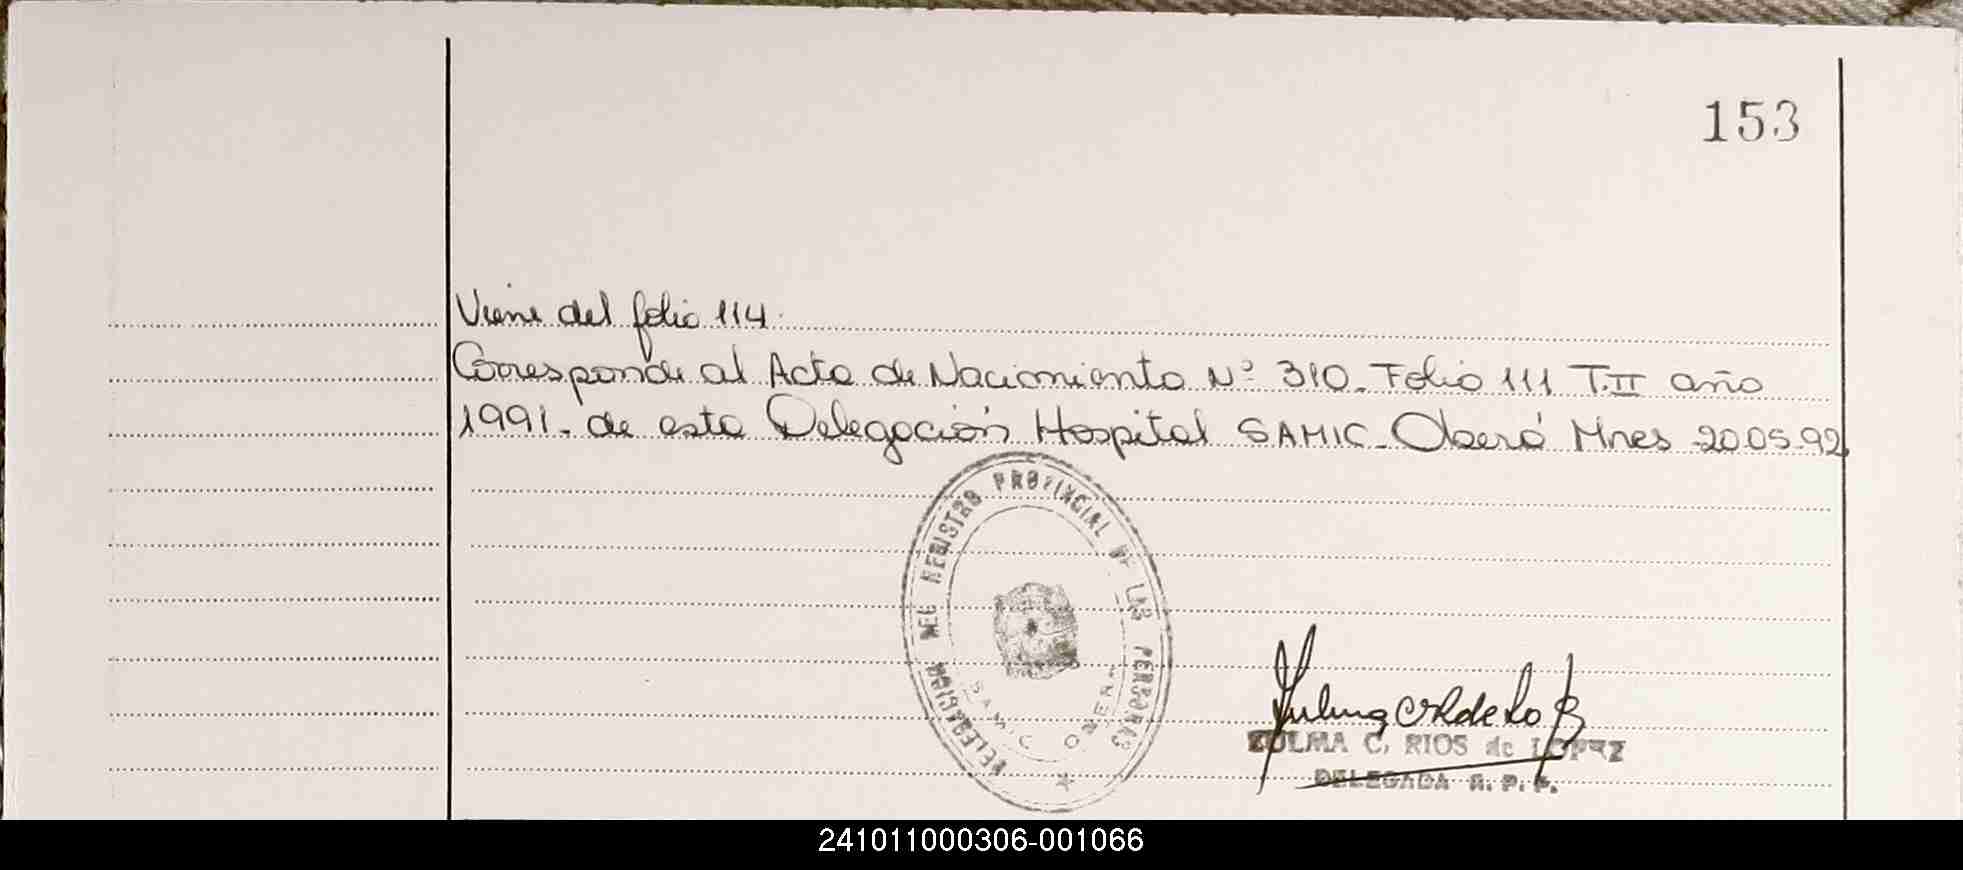 153
Viene del folio 114.
Corresponde al Acta de Nacimiento Nº 310. Folio 111 T.II año
1991. de esta Delegación Hospital SAMIC. Oberá Mnes 20.05.92
DELEGACION DEL REGISTRO PROVINCIAL DE LAS PERSONAS
SAMIC OBERA
ZULMA C. RIOS de LOPEZ
DELEGADA R. P. P.
241011000306-001066